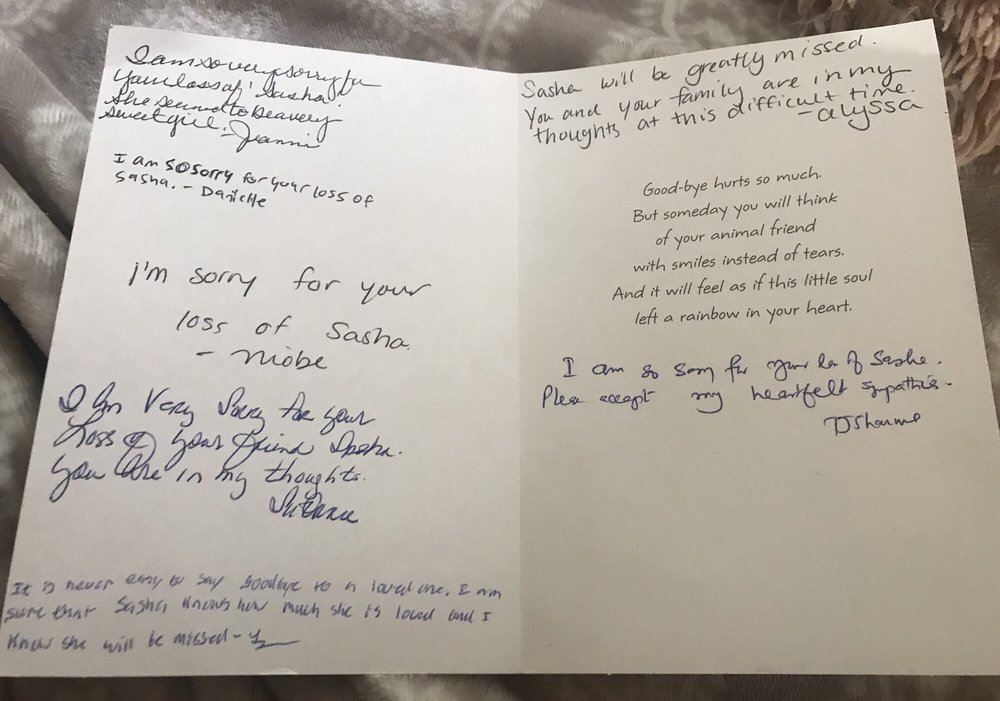 I am so very sorry for
your loss of Sasha.
She seemed to be a very
sweet girl. - Jeanni
I am so sorry for your loss of
Sasha. - Danielle
i'm sorry for your
loss of Sasha.
- Niobe
I Am Very Sorry for your
Loss of your friend Sasha.
You are in my thoughts.
It is never easy to say Goodbye to a loved one. I am
sure that Sasha knows how much she is loved and I
know she will be missed -
Sasha will be greatly missed.
You and your family are in my
thoughts at this difficult time.
- alyssa
Good-bye hurts so much.
But someday you will think
of your animal friend
with smiles instead of tears.
And it will feel as if this little soul
left a rainbow in your heart.
I am so sorry for your loss of Sasha.
Please accept my heartfelt sympathies.